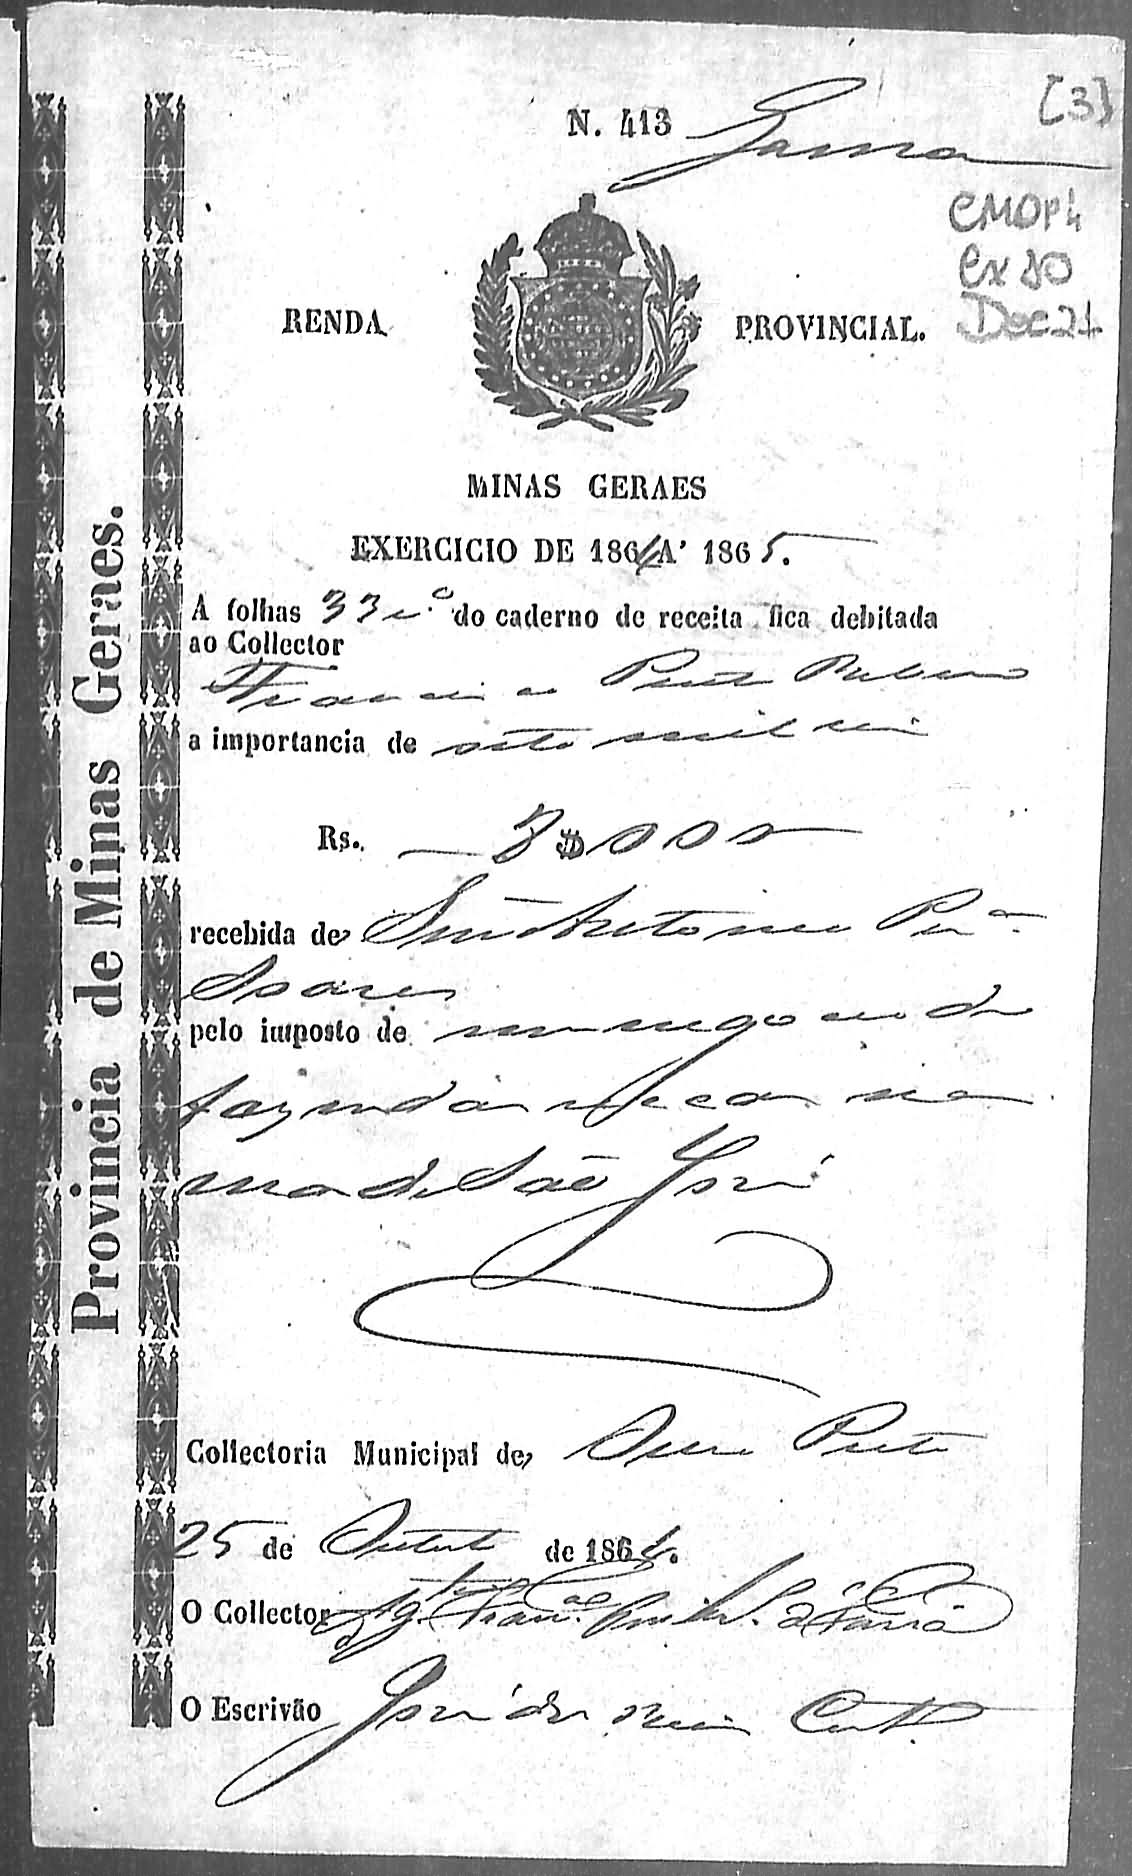 [3]
N. 413 Gama
CMOP4
Cx 80
Doc 21
RENDA PROVINCIAL.
MINAS GERAES
EXERCICIO DE 1864 A' 1865.
A folhas 33 do caderno de receita fica debitada
ao Collector
Francisco
a importancia de oito mil reis
Rs. 8$000
recebida de Antonio Pra.
Soares
pelo imposto de seu negocio de
fazenda secca na
rua de São José
Collectoria Municipal de Ouro Preto
25 de Outubro de 1864.
O Collector
O Escrivão José
Provincia de Minas Geraes.